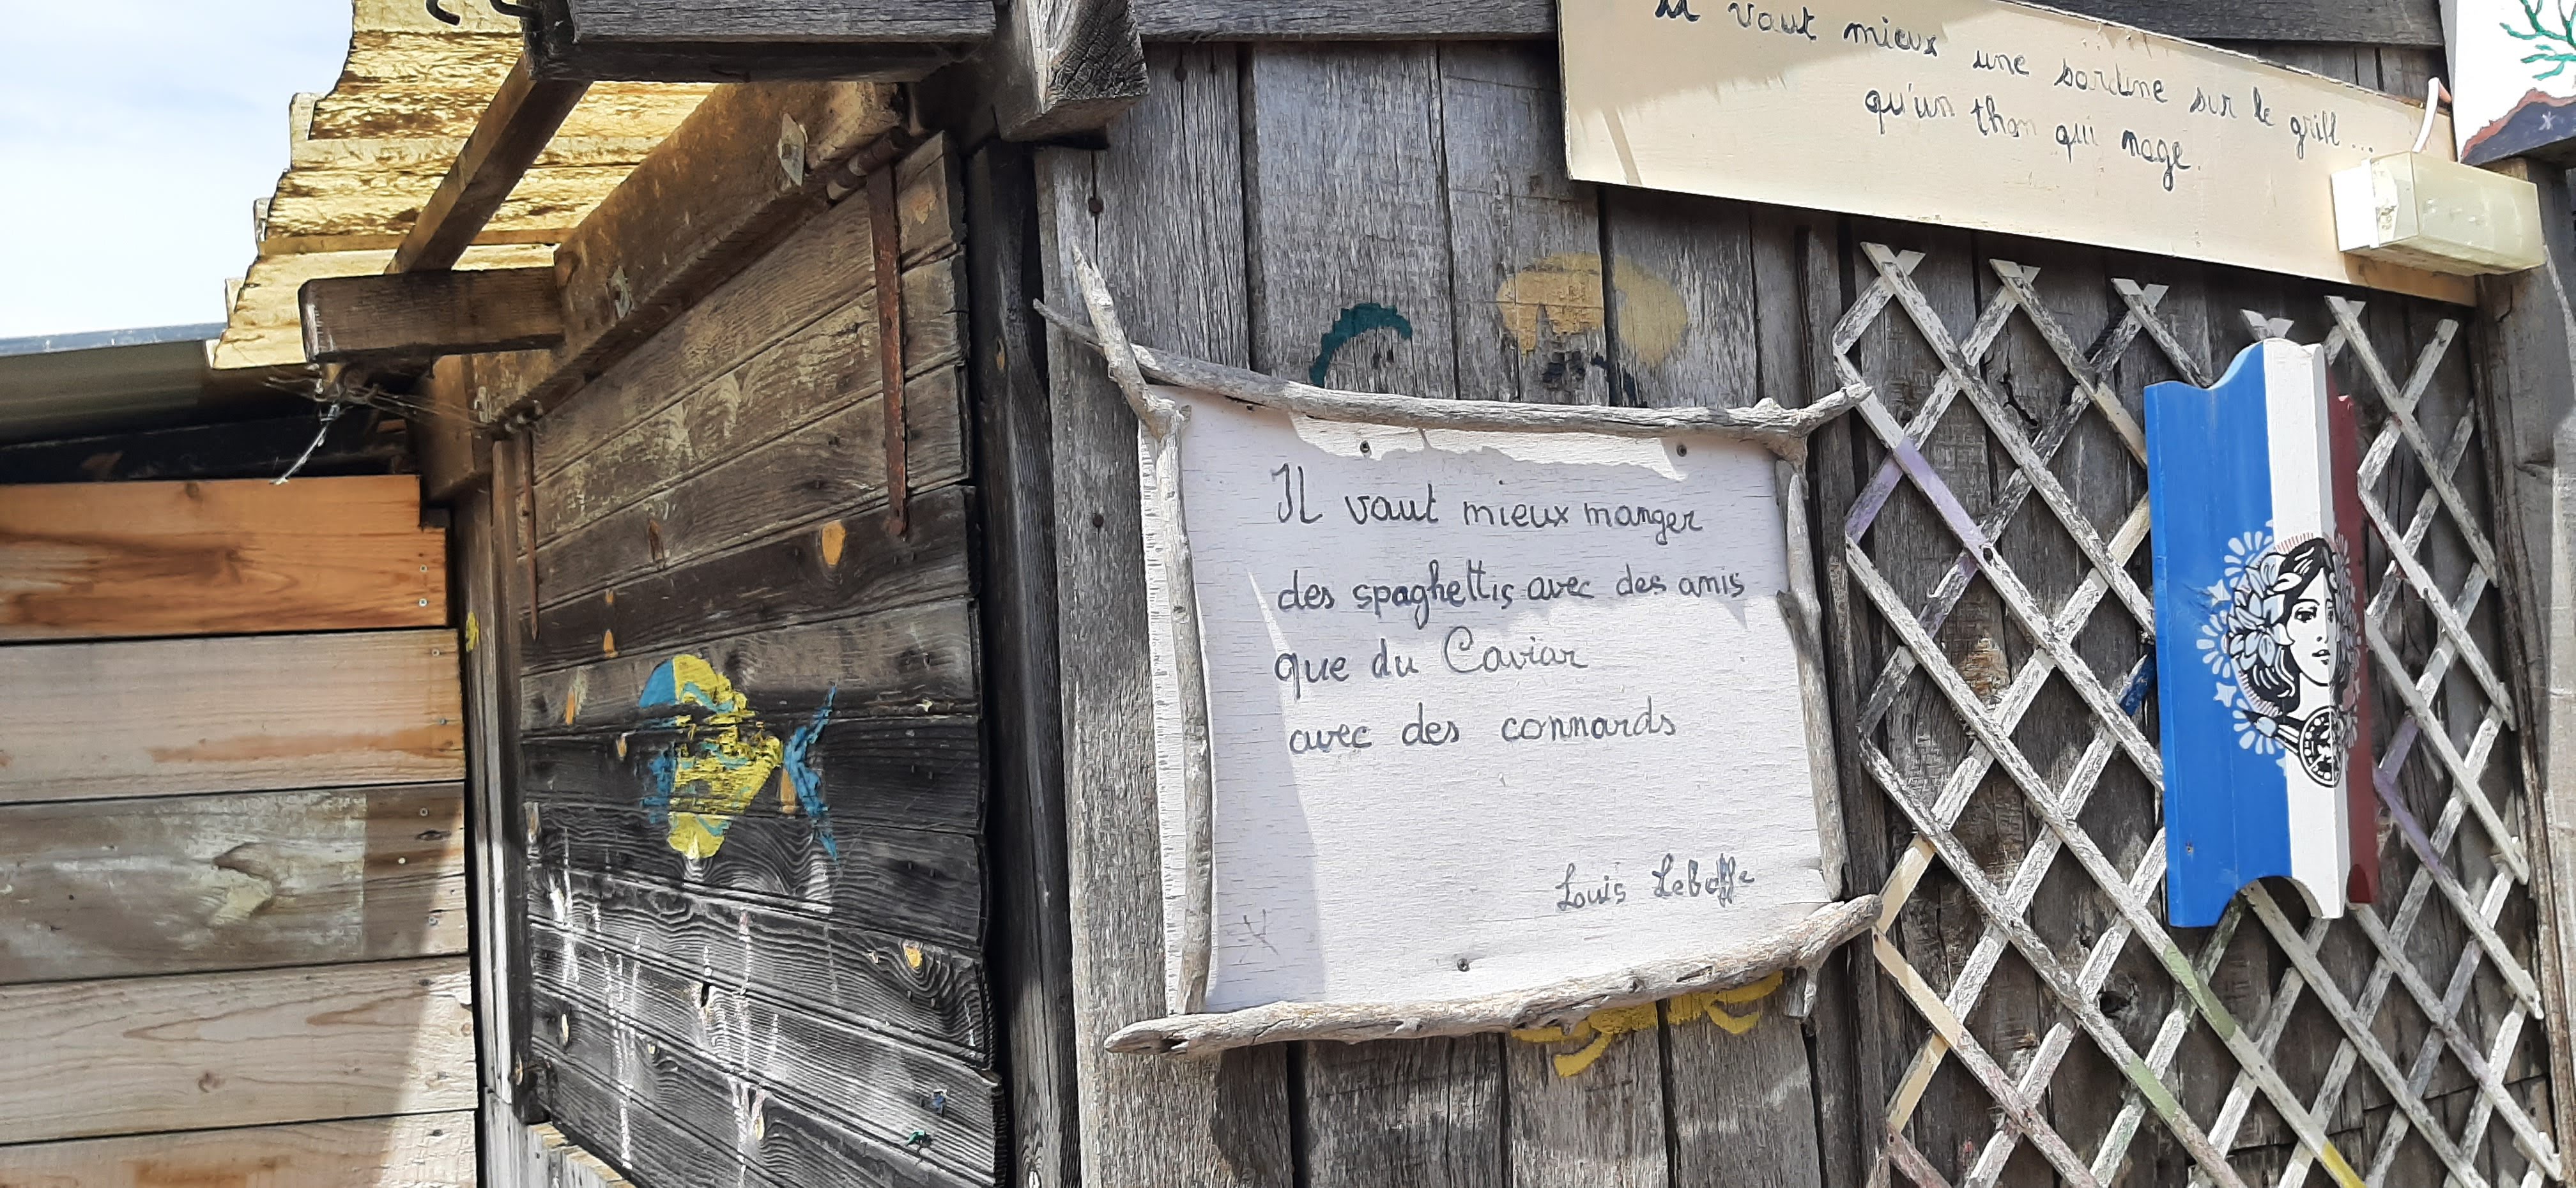 Il vaut mieux une sardine sur le grill...
qu'un thon qui nage.
Il vaut mieux manger
des spaghettis avec des amis
que du Caviar
avec des connards
Louis Leboffe